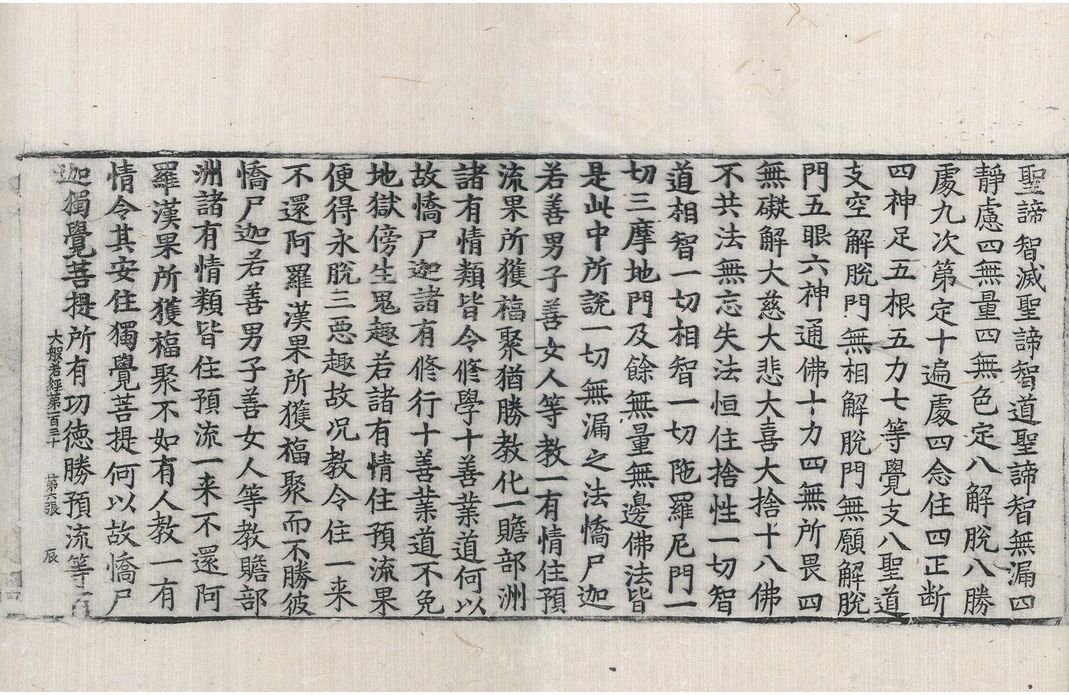 聖諦智滅聖諦智道聖諦智無漏四
靜慮四無量四無色定八解脫八勝
處九次第定十遍處四念住四正断
四神足五根五力七等覺支八聖道
支空解脫門無相解脫門無願解脫
門五眼六神通佛十力四無所畏四
無礙解大慈大悲大喜大捨十八佛
不共法無忘失法恒住捨性一切智
道相智一切相智一切陁羅尼門一
切三摩地門及餘無量無邊佛法皆
是此中所說一切無漏之法憍尸迦
若善男子善女人等教一有情住預
流果所獲福聚猶勝教化一贍部洲
諸有情類皆令修學十善業道何以
故憍尸迦諸有修行十善業道不免
地獄傍生鬼趣若諸有情住預流果
便得永脫三惡趣故况教令住一来
不還阿羅漢果所獲福聚而不勝彼
憍尸迦若善男子善女人等教贍部
洲諸有情類皆住預流一来不還阿
羅漢果所獲福聚不如有人教一有
情令其安住獨覺菩提何以故憍尸
迦獨覺菩提所有功德勝預流等百
大般若經第一百三十 第六張 辰